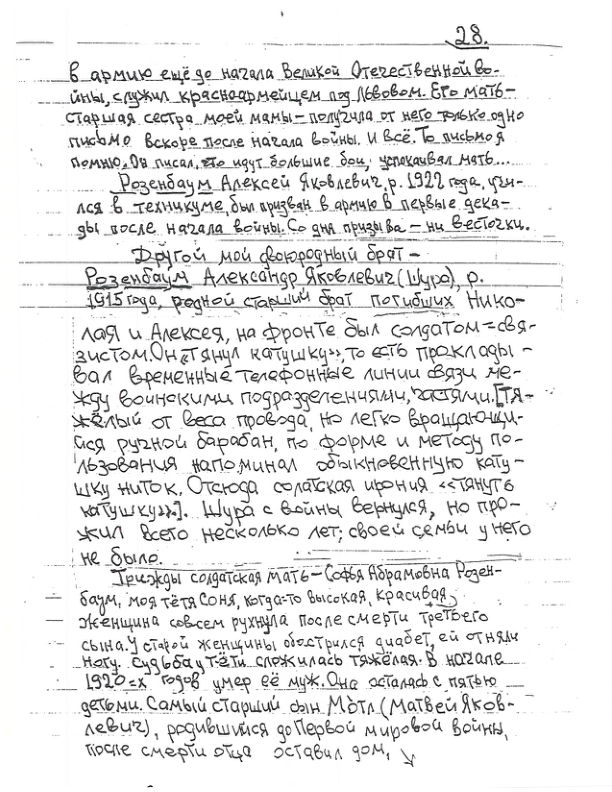 28.
в армию ещё до начала Великой Отечественной во-
йны, служил красноармейцем под Львовом. Его мать –
старшая сестра моей мамы – получила от него только одно
письмо вскоре после начала войны. И всё. То письмо я
помню. Он писал, что идут большие бои, успокаивал мать...
Розенбаум Алексей Яковлевич, р. 1922 года, учи-
лся в техникуме, был призван в армию в первые дека-
ды после начала войны. Со дня призыва – ни весточки.
Другой мой двоюродный брат –
Розенбаум Александр Яковлевич (Шура), р.
1915 года, родной старший брат погибших Нико-
лая и Алексея, на фронте был солдатом = свя-
зистом. Он «тянул катушку», то есть проклады -
вал временные телефонные линии связи ме-
жду воинскими подразделениями, частями. [Тя-
жёлый от веса провода, но легко вращающи-
йся ручной барабан, по форме и методу по-
льзования напоминал обыкновенную кату-
шку ниток. Отсюда солатская ирония «тянуть
катушку».] Шура с войны вернулся, но про-
жил всего несколько лет; своей семьи у него
не было.
Трижды солдатская мать – Софья Абрамовна Розен-
баум, моя тётя Соня, когда-то высокая, красивая
женщина совсем рухнула после смерти третьего
сына. У старой женщины обострился диабет, ей отняли
ногу. Судьба у тёти сложилась тяжёлая. В начале
1920=х годов умер её муж. Она осталась с пятью
детьми. Самый старший сын Мотл (Матвей Яков-
левич), родившийся до Первой мировой войны,
после смерти отца оставил дом,